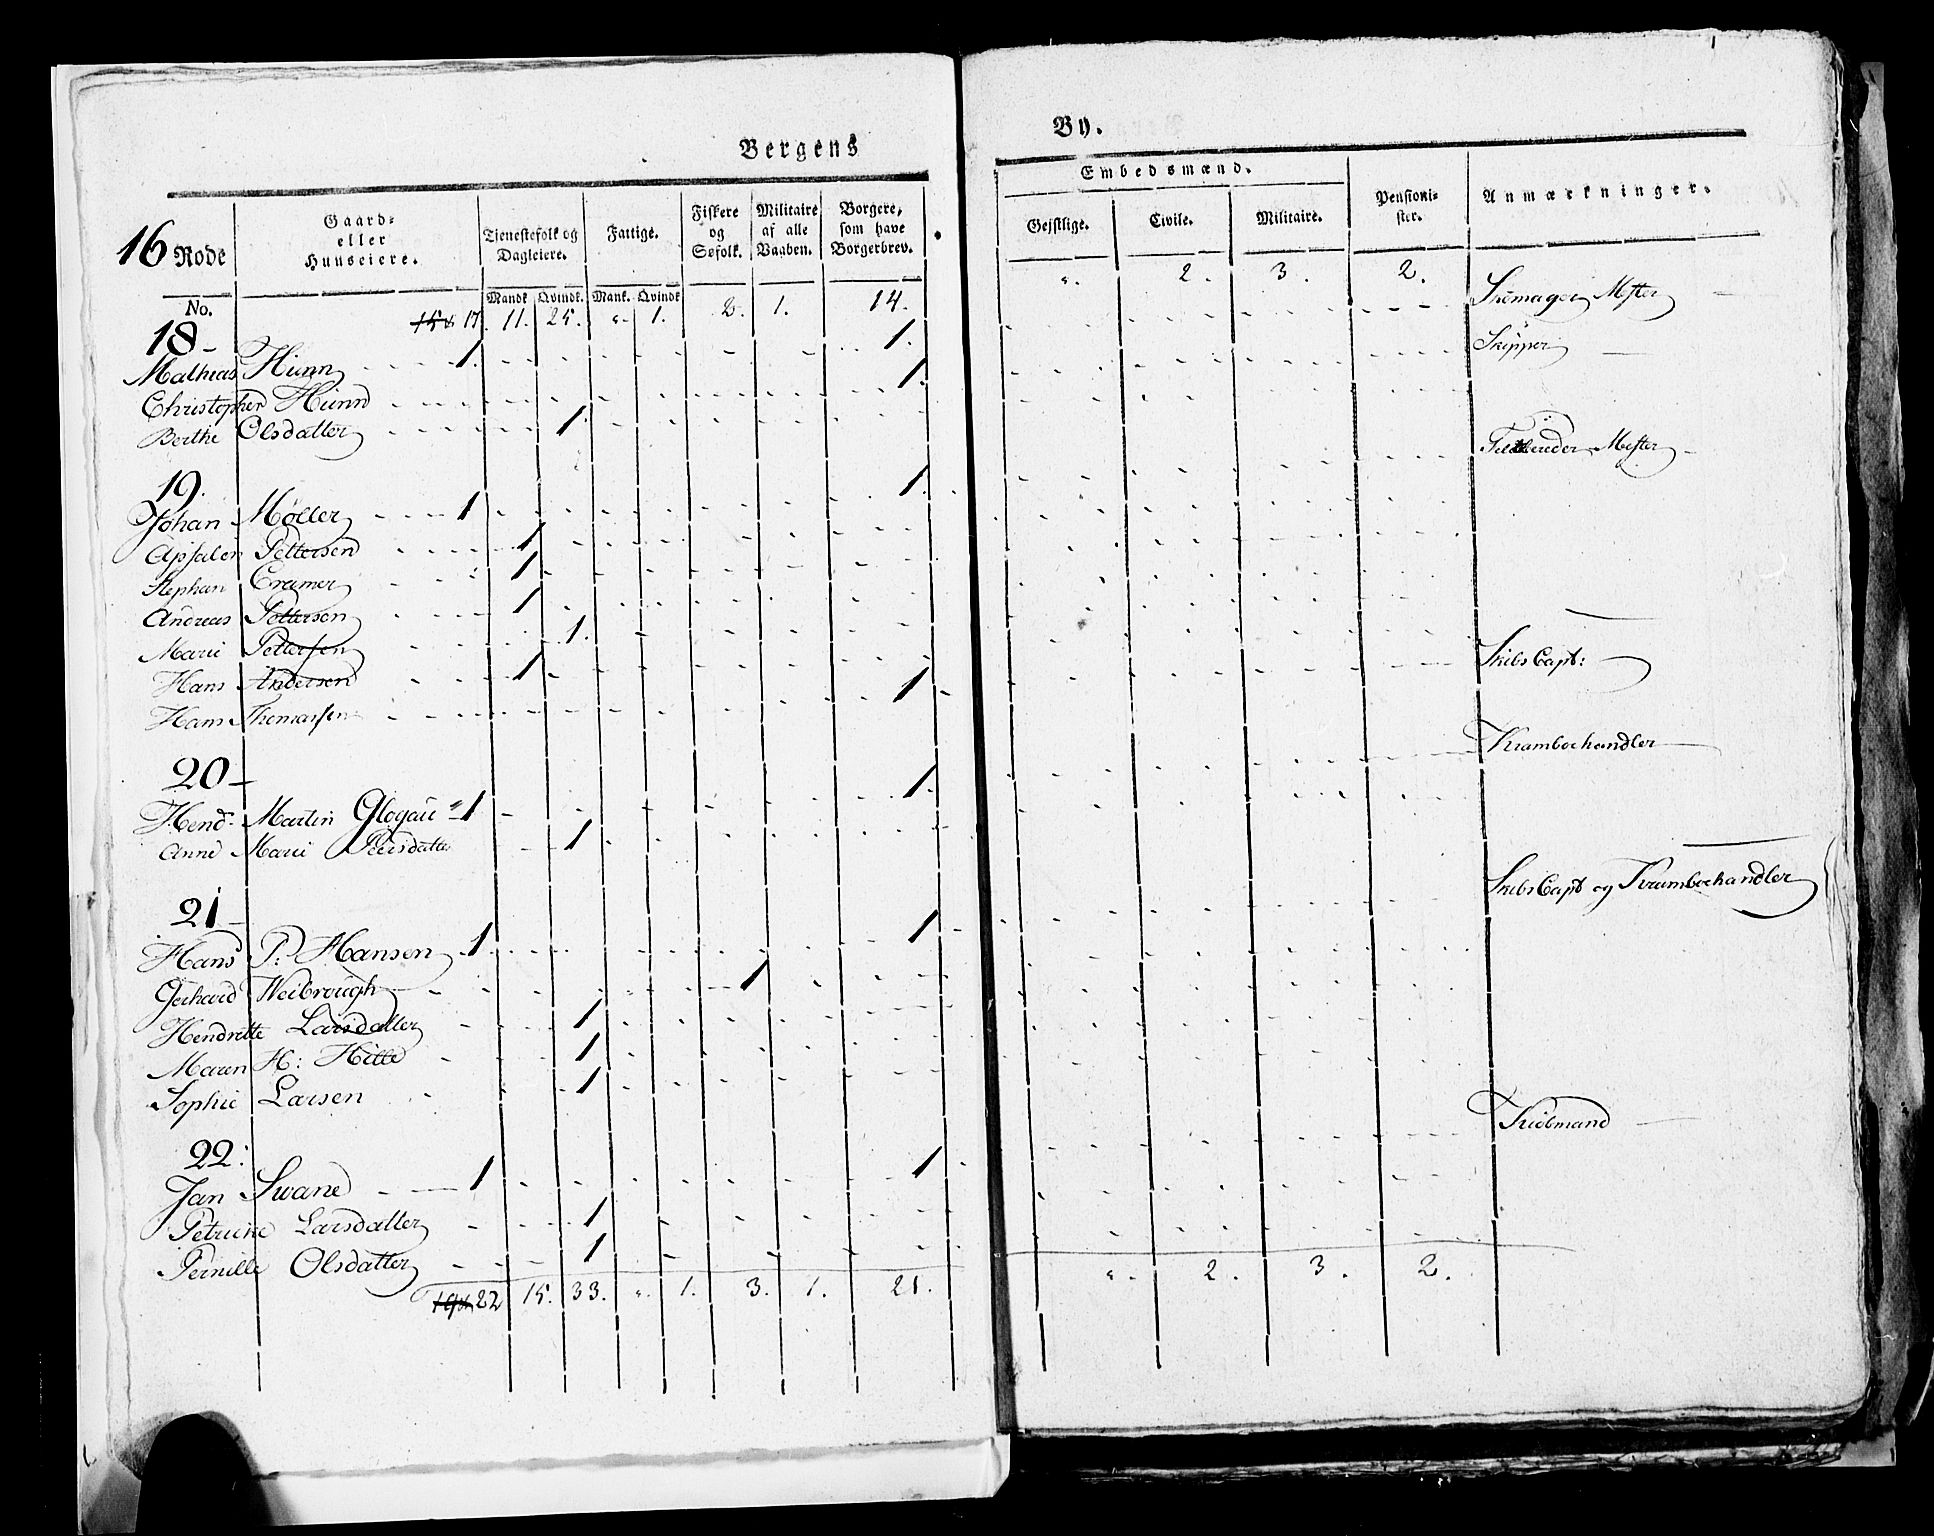 Bergens By.
16 Rode No.
Gaard- eller Huuseiere.
Tjenestefolk og Dagleiere. Mandk. Qvindk.
Fattige. Mank. Qvindk.
Fiskere og Søfolk.
Militaire af alle Vaaben.
Borgere, som have Borgerbrev.
Embedsmænd. Gejstlige. Civile. Militaire.
Pensionister.
Anmærkninger.
17. 11. 25. „ 1. 2. 1. 14. „ 2. 3. 2.
18 –
Mathias Hünn 1. 1. Skomager Mester
Christopher Hünn 1. Skipper
Berthe Olsdatter 1.
19.
Johan Møller 1 1. Feldbereder Mester
Apsalon Pettersen 1
Stephan Cramer 1
Andreas Pettersen 1
Marie Pettersen 1.
Hans Andersen 1
Hans Thomassen 1 Skibs Capt:
20 –
Hend: Martin Glogau 1 1 Kramboehandler
Anne Marie Peersdatter 1
21 –
Hans P: Hansen 1 1 Skibs Capt og Kramboehandler
Gerhard Weibrough 1
Hendrette Larsdatter 1
Maren H: Hille 1
Sophie Larsen 1
22:
Jan Swane 1 1 Kiöbmand
Petricke Larsdatter 1
Pernille Olsdatter 1
22 15. 33. „ 1. 3. 1. 21. „ 2. 3. 2.